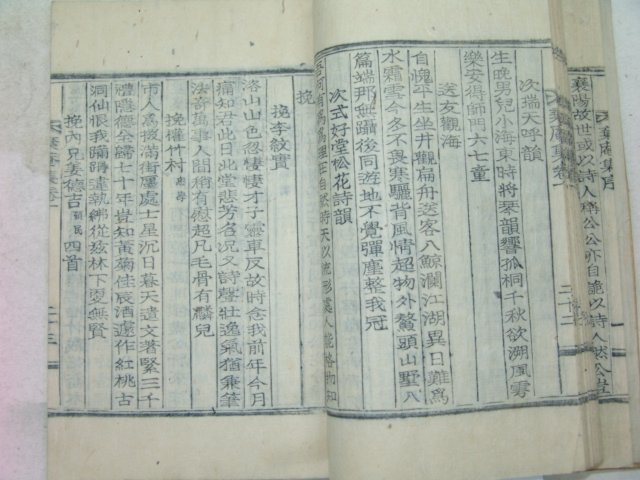 襄陽故世或以詩人稱公公亦自詭以詩人然公學
集序
集卷
二十二
次瑞天呼韻
生晚男兒小海東時將琴韻響孤桐千秋欲溯風雩
樂安得師門六七童
送友觀海
自愧平生坐井觀扁舟送客八鯨瀾江湖異日難爲
水霜雪今冬不畏寒驢背風情超物外鰲頭山墅八
篇端那無躡後同遊地不覺彈塵整我冠
次式好堂松花詩韻
挽
挽李紋實
洛山山色忍悽悽才子靈車反故時念我前年今月
痛知君此日此堂悲芳名況又詩聲壯逸氣猶兼筆
法奇萬事人間稍有慰超凡毛骨有麟兒
挽權竹村
市人爲撥滿街處士星沉日暮天遺文著緊三千
體隱德全歸七十年豈知黃菊佳辰酒遽作紅桃古
洞仙恨我蹣跚違執紼從茲林下更無賢
挽內兄姜德吉 四首
二十三